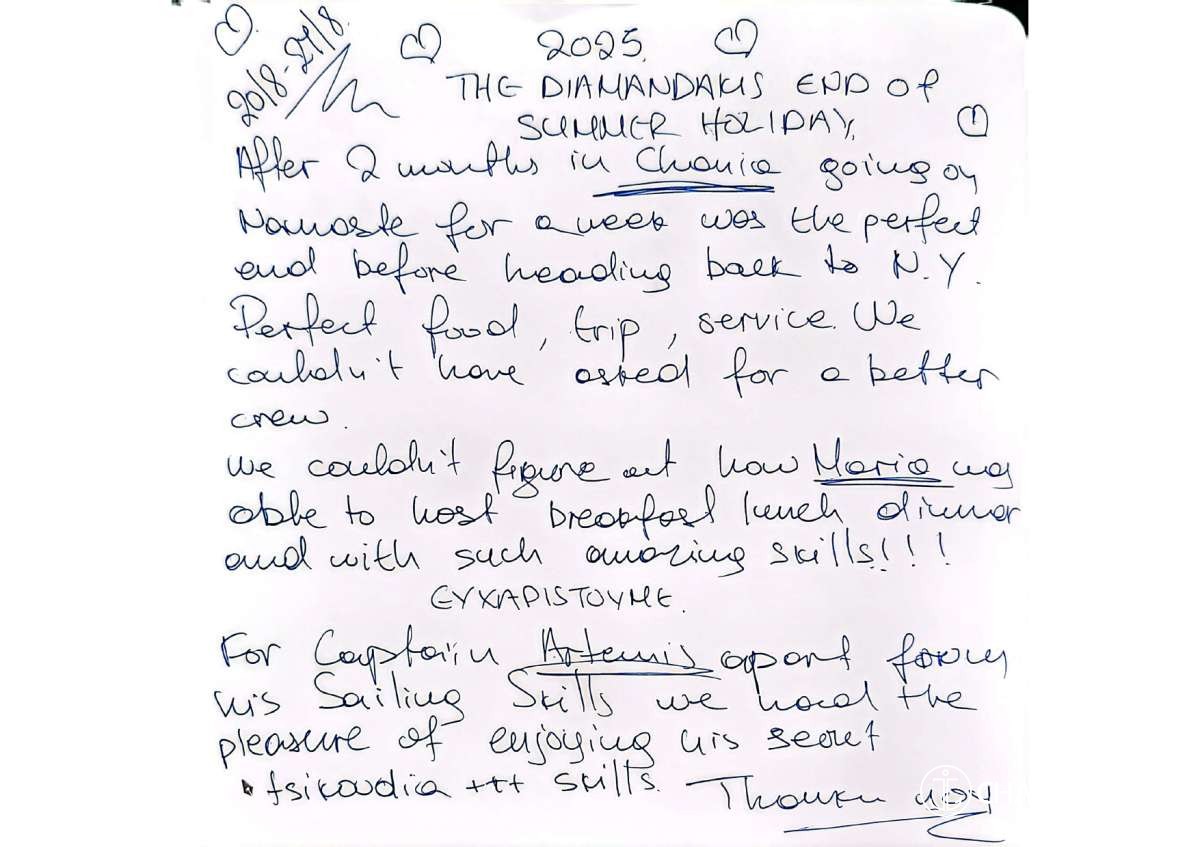 20/8-27/8.
2025.
THE DIAMANDAKIS END OF
SUMMER HOLIDAY.
After 2 months in Chania going on
Namaste for a week was the perfect
end before heading back to N.Y.
Perfect food, trip, service. We
couldn't have asked for a better
crew.
We couldn't figure out how Maria was
able to host breakfast lunch dinner
and with such amazing skills!!!
ΕΥΧΑΡΙΣΤΟΥΜΕ.
For Captain Artemis apart from
his Sailing Skills we had the
pleasure of enjoying his secret
tsikoudia +++ skills. Thank you